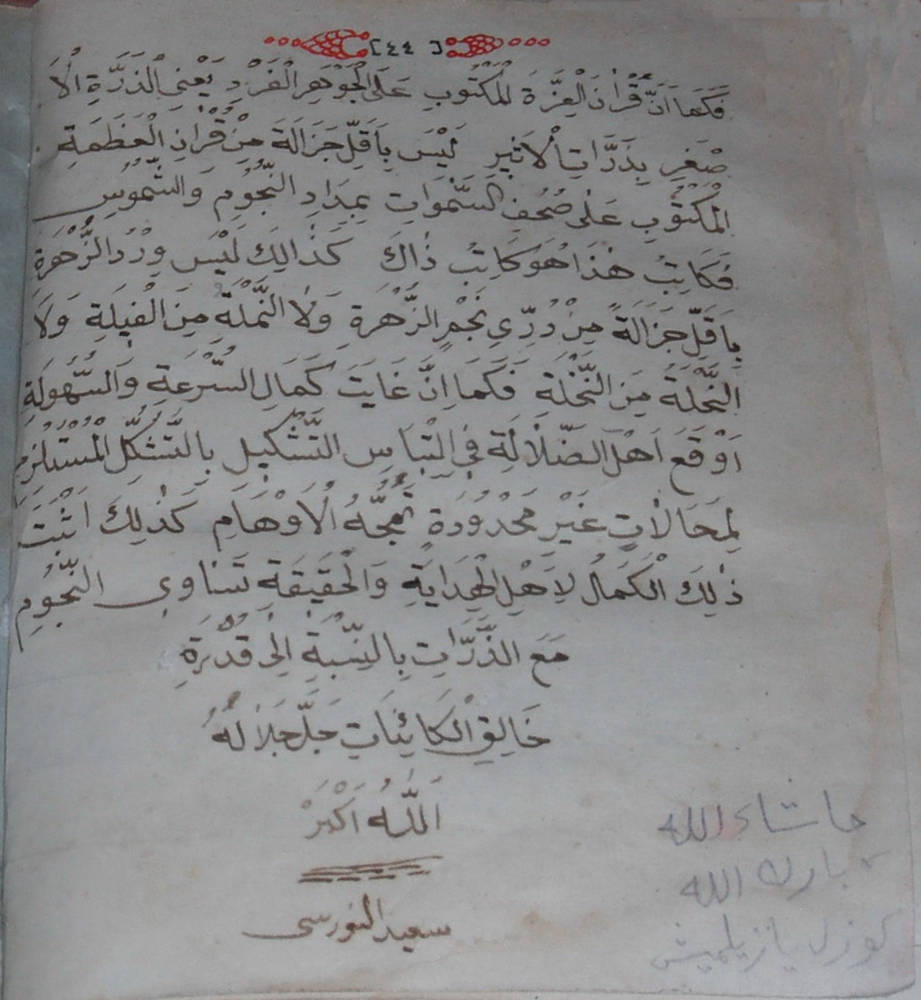 [ ٤٤ ]
فَكَمَا اَنَّ قُرْاٰنَ الْعِزَّةِ الْمَكْتُوبِ عَلَى الْجَوْهَرِ الْفَرْدِ يَعْنِى الذَّرَّةِ الْاَ
صْغَرِ بِذَرَّاتِ الْاَثِيرِ لَيْسَ بِاَقَلِّ جَزَالَةً مِنْ قُرْاٰنِ الْعَظَمَةِ
الْمَكْتُوبِ عَلٰى صُحُفِ السَّمٰوَاتِ بِمِدَادِ النُّجُومِ وَالشُّمُوسِ
فَكَاتِبُ هٰذَا هُوَ كَاتِبُ ذَاكَ كَذَالِكَ لَيْسَ وِرْدُ الزَّهْرَةِ
بِاَقَلِّ جَزَالَةً مِنْ دُرِّىِ نَجْمِ الزُّهْرَةِ وَلَا النَّمْلَةِ مِنَ الْفِيلَةِ وَلَا
النَّحْلَةُ مِنَ النَّخْلَةِ فَكَمَا اِنَّ غَايَتَ كَمَالِ السُّرْعَةِ وَالسُّهُولَةِ
اَوْقَعَ اَهْلَ الضَّلَالَةِ فِى الْتِبَاسِ التَّشْكِيلِ بِالتَّشَكُّلِ الْمُسْتَلْزِمِ
لِمَحَالَاتٍ غَيْرِ مَحْدُودَةٍ تَمُجُّهُ الْاَوْهَامِ كَذٰلِكَ اَثْبَتَ
ذٰلِكَ الْكَمَالُ لِاَهْلِ الْهِدَايَةِ وَالْحَقِيقَةِ تَسَاوِى النُّجُومِ
مَعَ الذَّرَّاتِ بِالنِّسْبَةِ اِلٰى قُدْرَةِ
خَالِقِ الْكَائِنَاتِ جَلَّ جَلَالُهُ
اَللّٰهُ اَكْبَرْ
سعيد النورسى
ماشاء الله
بارك الله
كوزل يازيلميش